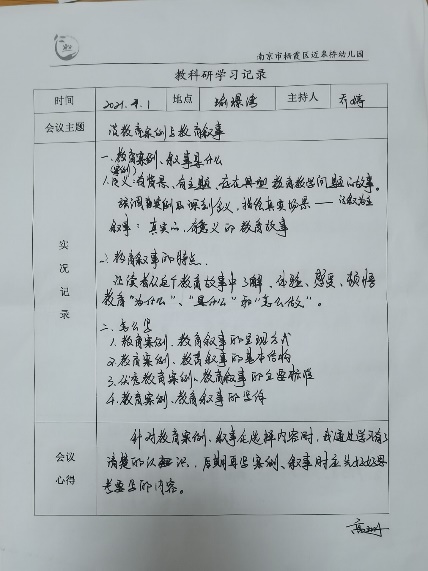 南京市栖霞区迈皋桥幼儿园
教科研学习记录
时间 2021.9.1 地点 瑜憬湾 主持人 乔婷
会议主题 谈教育案例与教育叙事
实况记录
一、教育案例、叙事是什么
(案例)
1.定义:有背景、有主题、存在典型教育教学问题的故事。
强调案例 深刻含义,描绘真实场景——记叙为主
叙事:真实的、有意义的教育故事
2.教育叙事的特点
让读者从这个教育故事中了解、体验、感受、领悟
教育"为什么"、"是什么"和"怎么做"。
二、怎么写
1.教育案例、教育叙事的呈现方式
2.教育案例、教育叙事的基本结构
3.优秀教育案例、教育叙事的主要标准
4.教育案例、教育叙事的写作
会议心得
针对教育案例、叙事在选择内容时,我通过学习有了
清楚的认知,后期再写案例、叙事时应先好好思
考要写的内容。